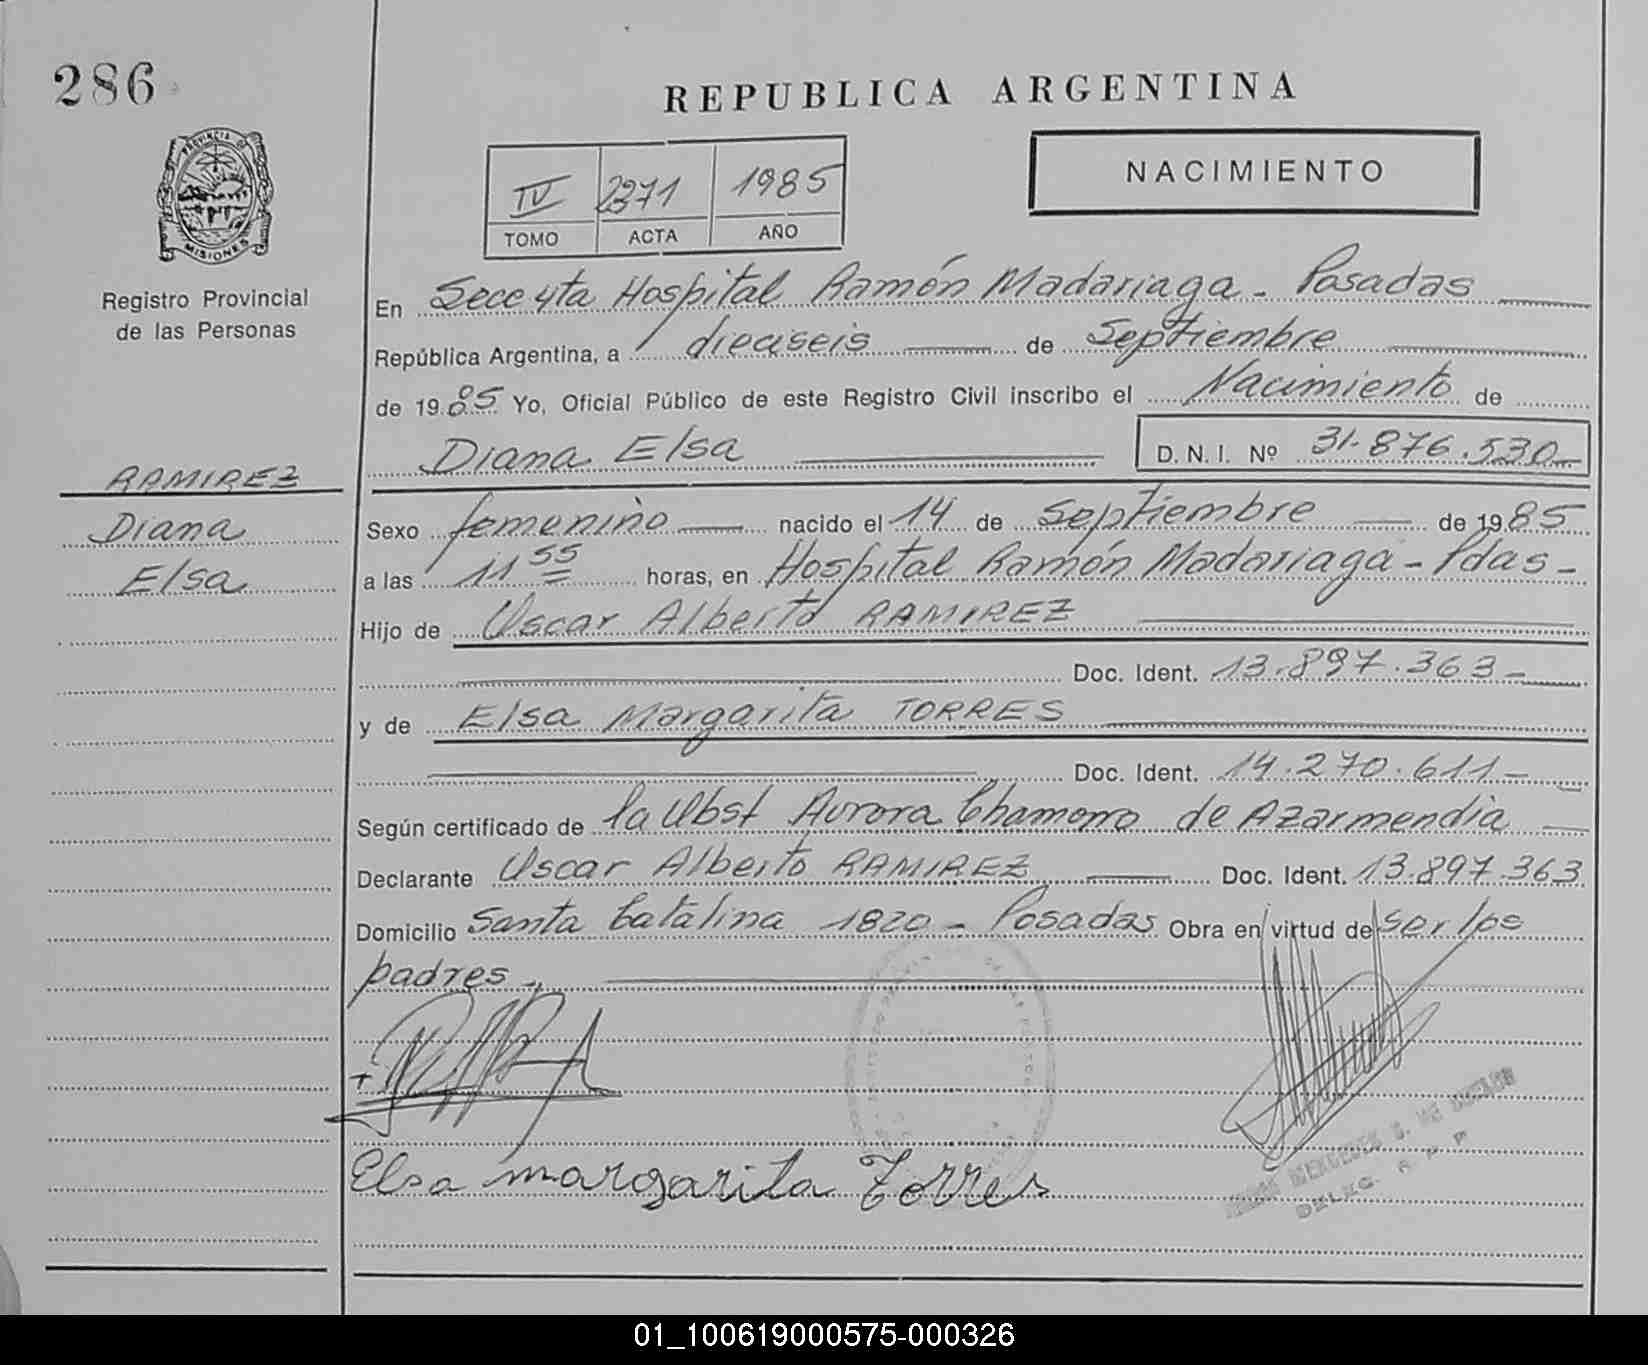 286
REPUBLICA ARGENTINA
PROVINCIA DE
MISIONES
Registro Provincial
de las Personas
IV 2371 1985
TOMO ACTA AÑO
NACIMIENTO
En Secc yta Hospital Ramón Madariaga - Posadas
República Argentina, a dieciseis de Septiembre
de 1985 Yo, Oficial Público de este Registro Civil inscribo el Nacimiento de
Diana Elsa D. N. I. Nº 31.876.530-
RAMIREZ
Diana
Elsa
Sexo femenino nacido el 14 de Septiembre de 1985
a las 11 55 horas, en Hospital Ramón Madariaga - Pdas -
Hijo de Oscar Alberto RAMIREZ
Doc. Ident. 13.897.363-
y de Elsa Margarita TORRES
Doc. Ident. 14.270.611-
Según certificado de la Obst Aurora Chamorro de Azarmendia
Declarante Oscar Alberto RAMIREZ Doc. Ident. 13.897.363
Domicilio Santa Catalina 1820 - Posadas Obra en virtud de ser los
padres.
Elsa margarita Torres
01_100619000575-000326